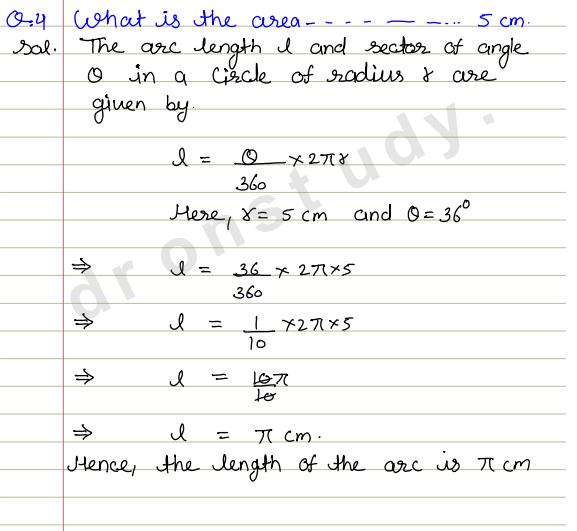 Q.4 What is the area - - - - — —... 5 cm.
Sol. The arc length l and sector of angle
θ in a circle of radius r are
given by.
l = θ/360 × 2πr
Here, r = 5 cm and θ = 36°
⇒ l = 36/360 × 2π×5
⇒ l = 1/10 ×2π×5
⇒ l = 10π/10
⇒ l = π cm.
Hence, the length of the arc is π cm
dronstudy.